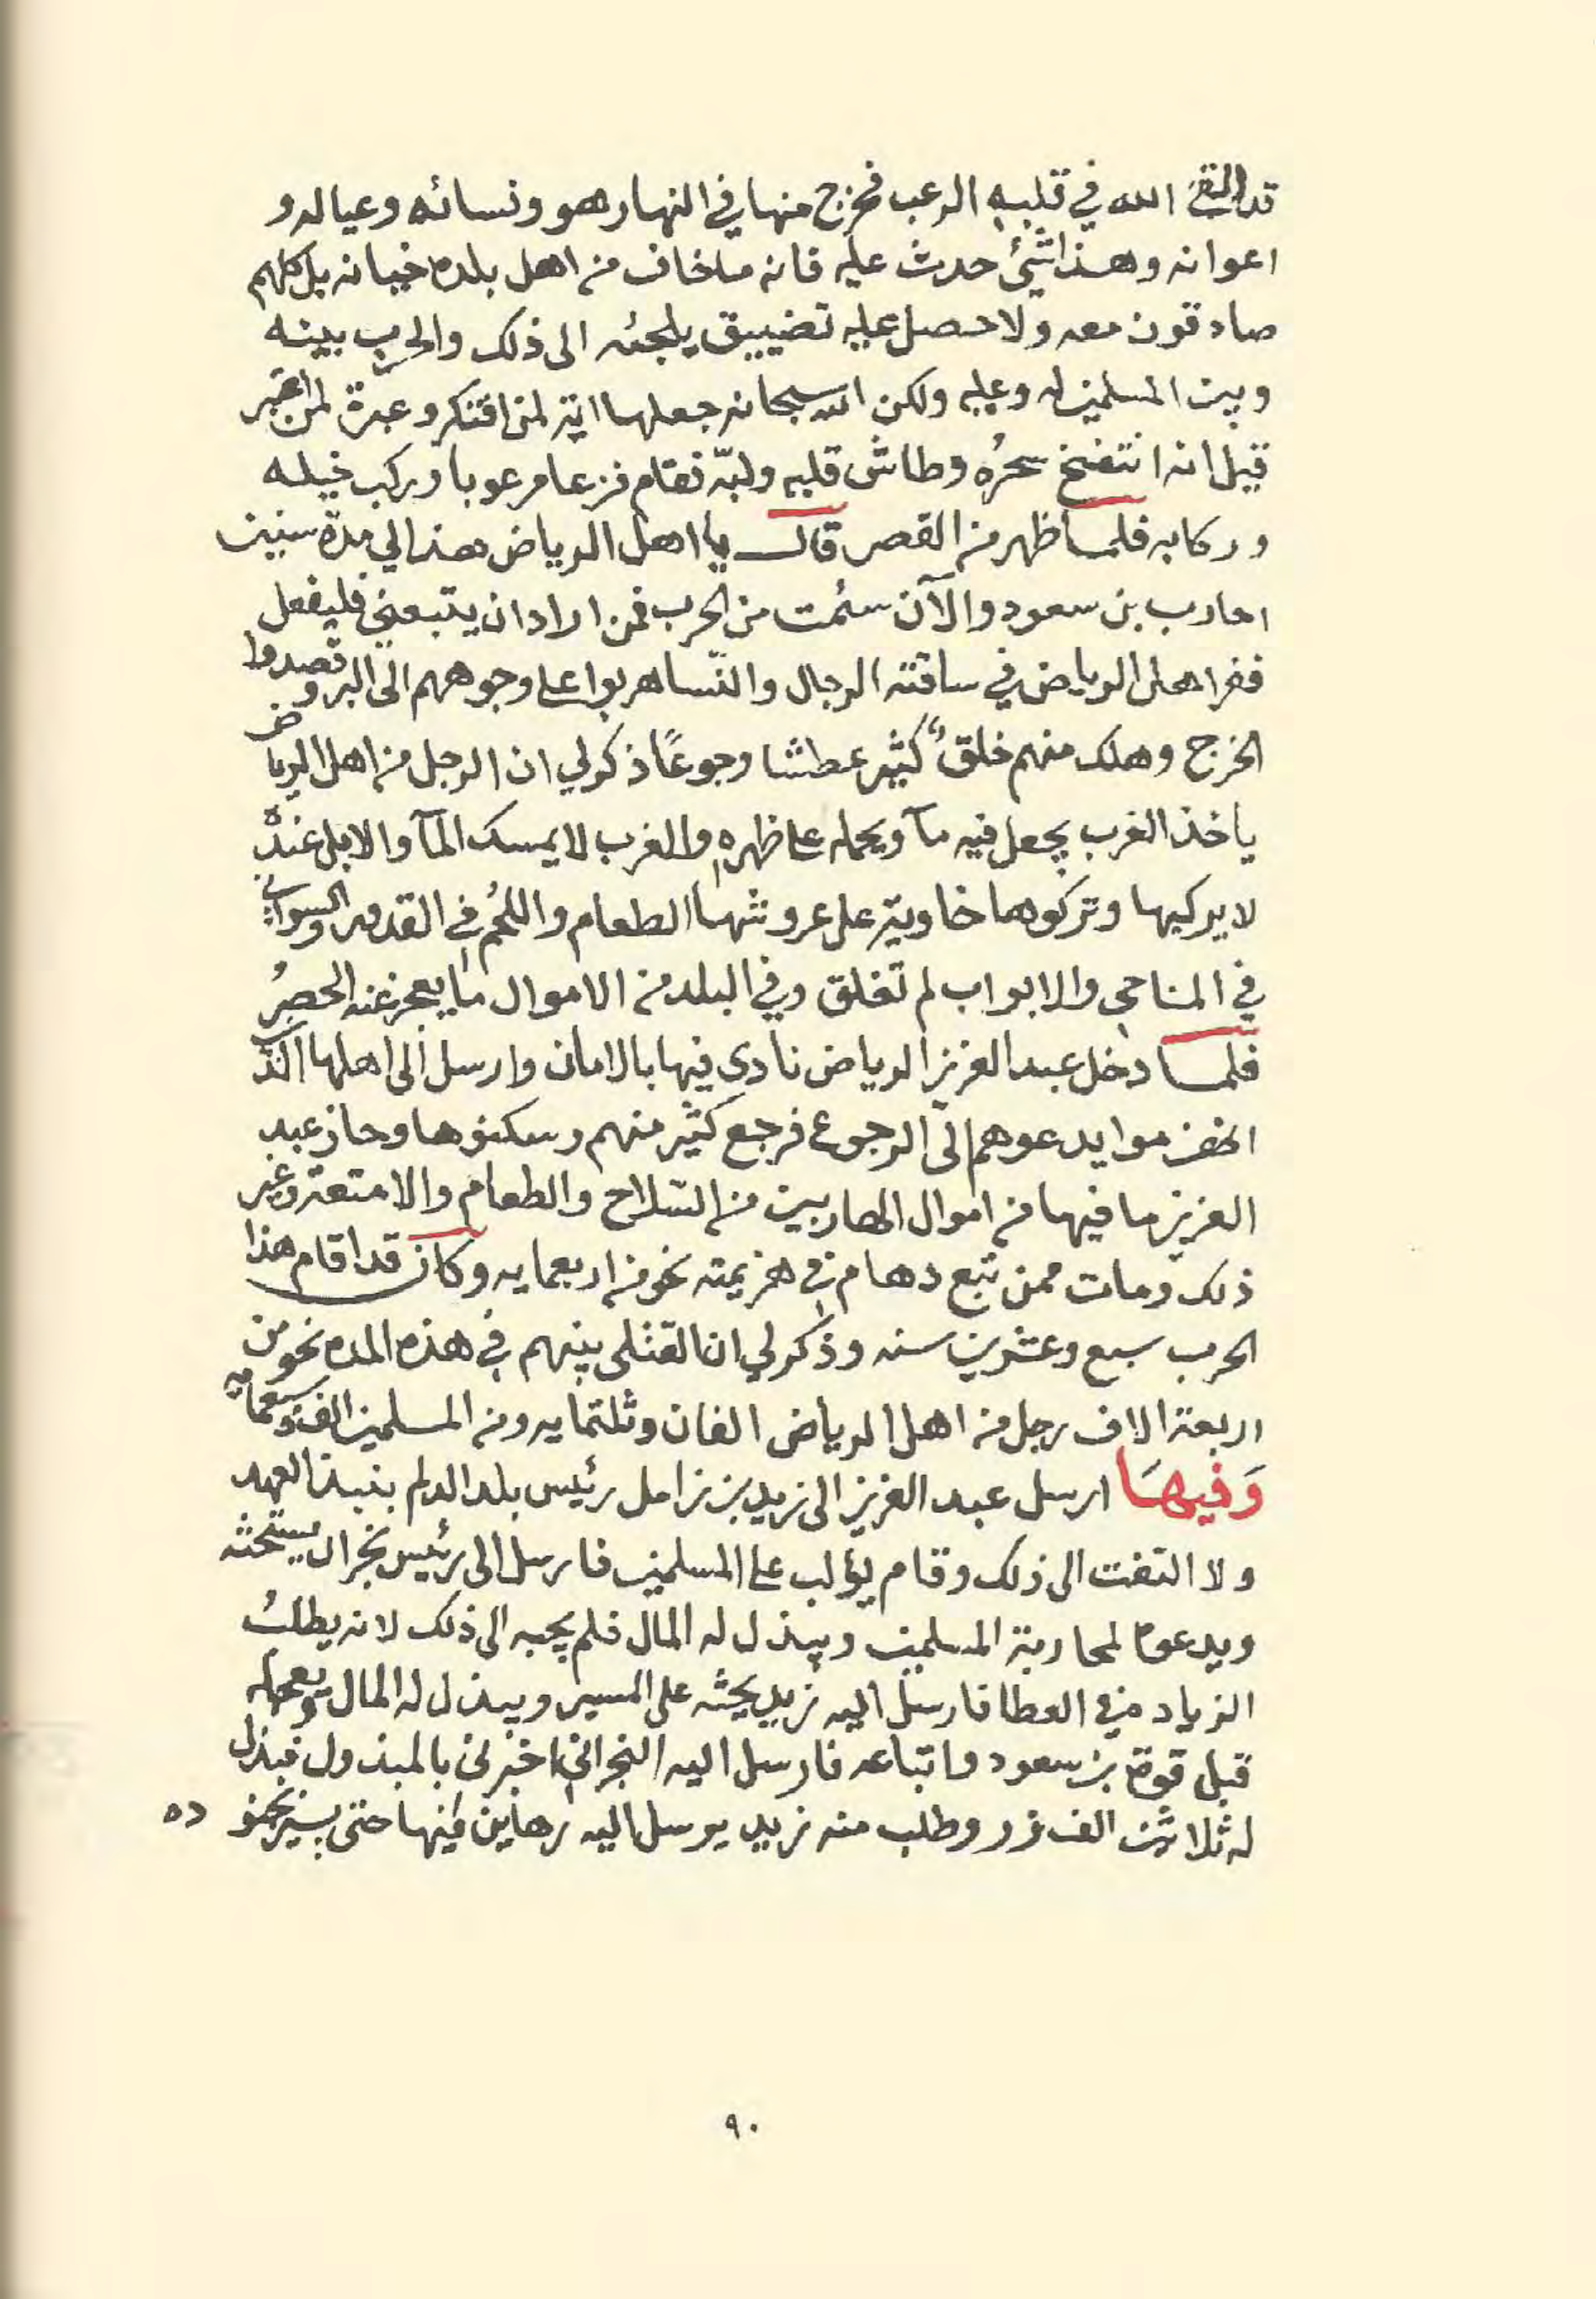 قد القى الله في قلبه الرعب فخرج منها في النهار هو ونسائه وعياله و
اعوانه وهذا شيئ حدث عليه فانه ما خاف من اهل بلده خيانه بل كلهم
صادقون معه ولا حصل عليه تضييق يلجئه الى ذلك والحرب بينه
وبين المسلمين له وعليه ولكن الله سبحانه جعلها اية لمن افتكر وعبرة لمن اعتبر
قيل انه انتفخ سحرُه وطاش قلبه ولبّه فقام فزعا مرعوبا وركب خيله
وركابه فلما ظهر من القصر قال يا اهل الرياض هذا لي مدّة سنين
احارب بن سعود والآن سئمت من الحرب فمن اراد ان يتبعني فليفعل
ففر اهل الرياض في ساقته الرجال والنّسا هربوا على وجوههم الى البر وقصدوا
الخرج وهلك منهم خلقٌ كثير عطشا وجوعًا ذكر لي ان الرجل من اهل الرياض
ياخذ الغرب يجعل فيه مآ ويحمله على ظهره والغرب لا يمسك المآ والابل عنده
لا يركبها وتركوها خاوية على عروشها الطعام واللحم في القدور والسواني
في المناحي والابواب لم تغلق وفي البلد من الاموال ما يعجز عنه الحصرُ
فلما دخل عبد العزيز الرياض نادى فيها بالامان وارسل الى اهلها الذين
انهزموا يدعوهم الى الرجوع فرجع كثير منهم وسكنوها وحاز عبد
العزيز ما فيها من اموال الهاربين من السّلاح والطعام والامتعة وغير
ذلك ومات ممن تبع دهام في هزيمته نحو من اربعمايه وكان قد اقام هذا
الحرب سبع وعشرين سنه وذكر لي ان القتلى بينهم في هذه المده نحو من
اربعة الاف رجل من اهل الرياض الفان وثلثمايه ومن المسلمين الف وسبعمايه
وَفيهَا ارسل عبد العزيز الى زيد بن زامل رئيس بلد الدلم بنبذ العهد
ولا التفت الى ذلك وقام يؤلب على المسلمين فارسل الى رئيس نجران يستحثه
ويدعوه لمحاربة المسلمين ويبذل له المال فلم يجبه الى ذلك لانه يطلبُ
الزياده في العطا فارسل اليه زيد يحثه على المسير ويبذل له المال
قبل قوة بن سعود واتباعه فارسل اليه النجراني اخبرني بالمبذول فبذل
له ثلاثين الف زر وطلب منه زيد يرسل اليه رهاين فيها حتى يسير بجنو ده
٩٠